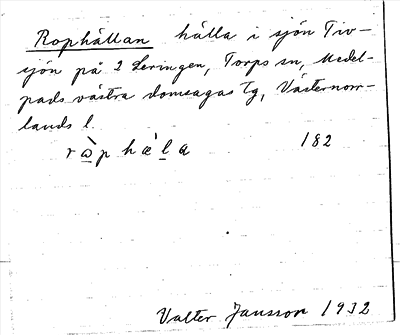 Rophällan hälla i sjön Tiv-
sjön på 2 Leringen, Torps sn, Medel-
pads västra domsagas tg, Västernorr-
lands l.
182
Valter Jansson 1932